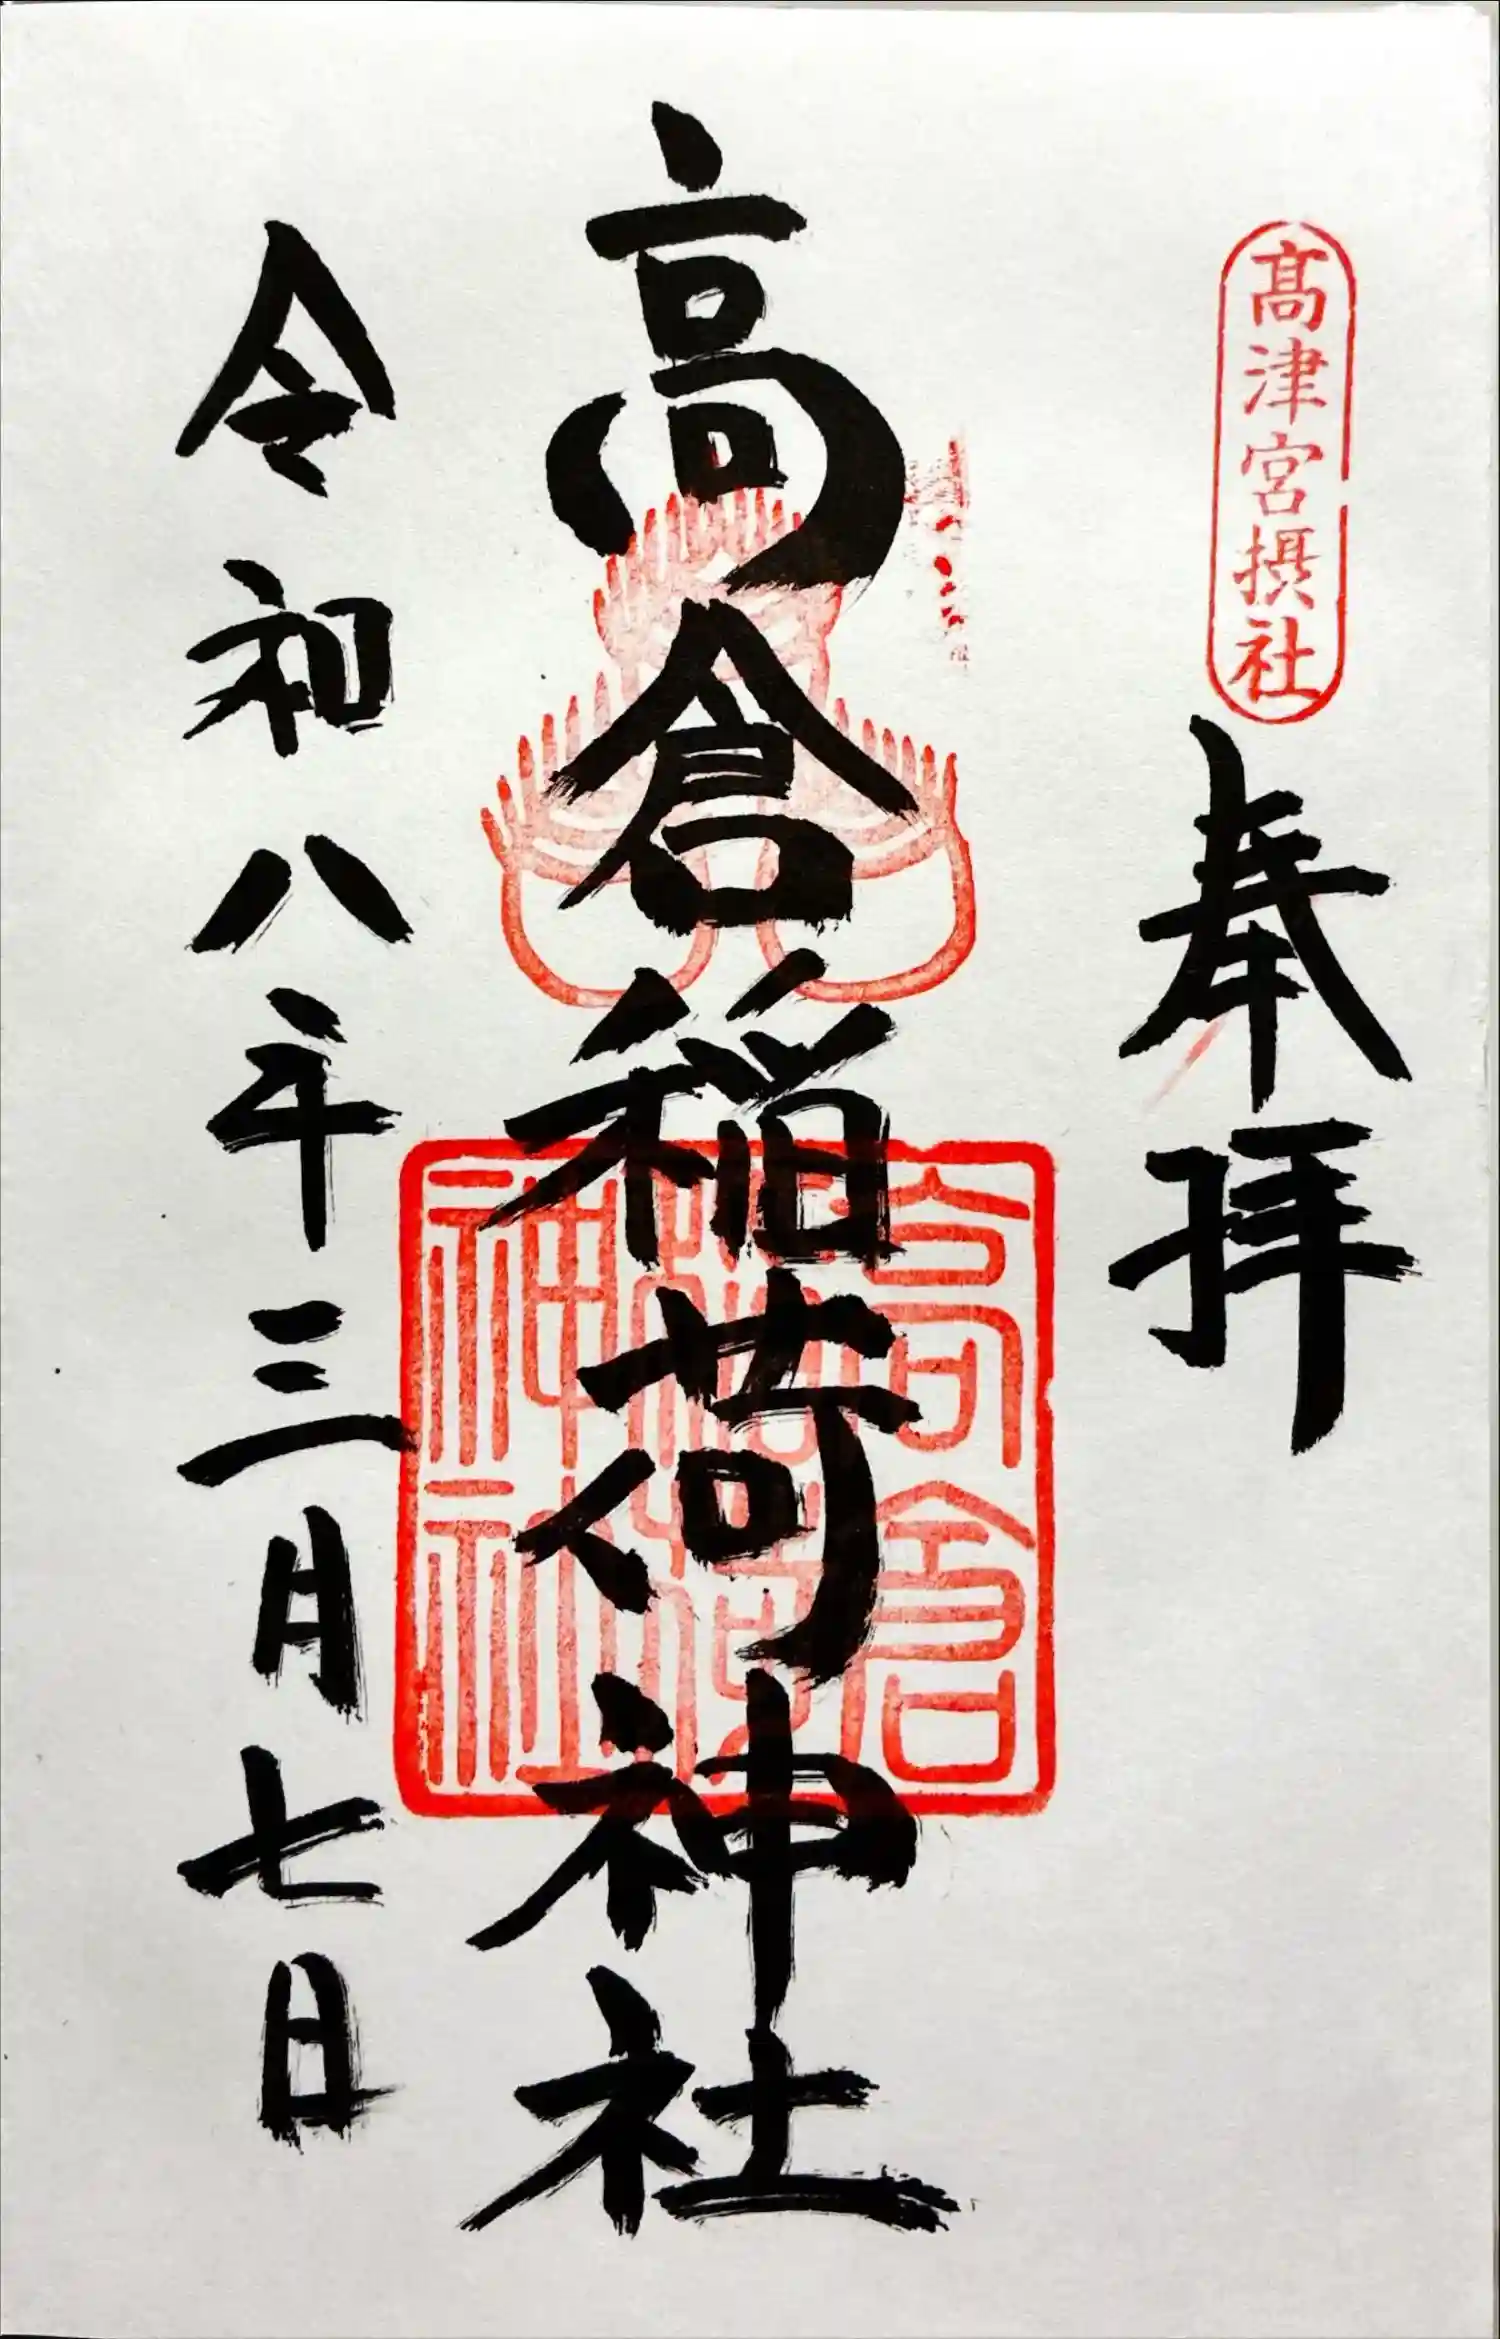 髙津宮摂社
奉拝
高倉稲荷神社
高倉稲荷神社
令和八年三月七日